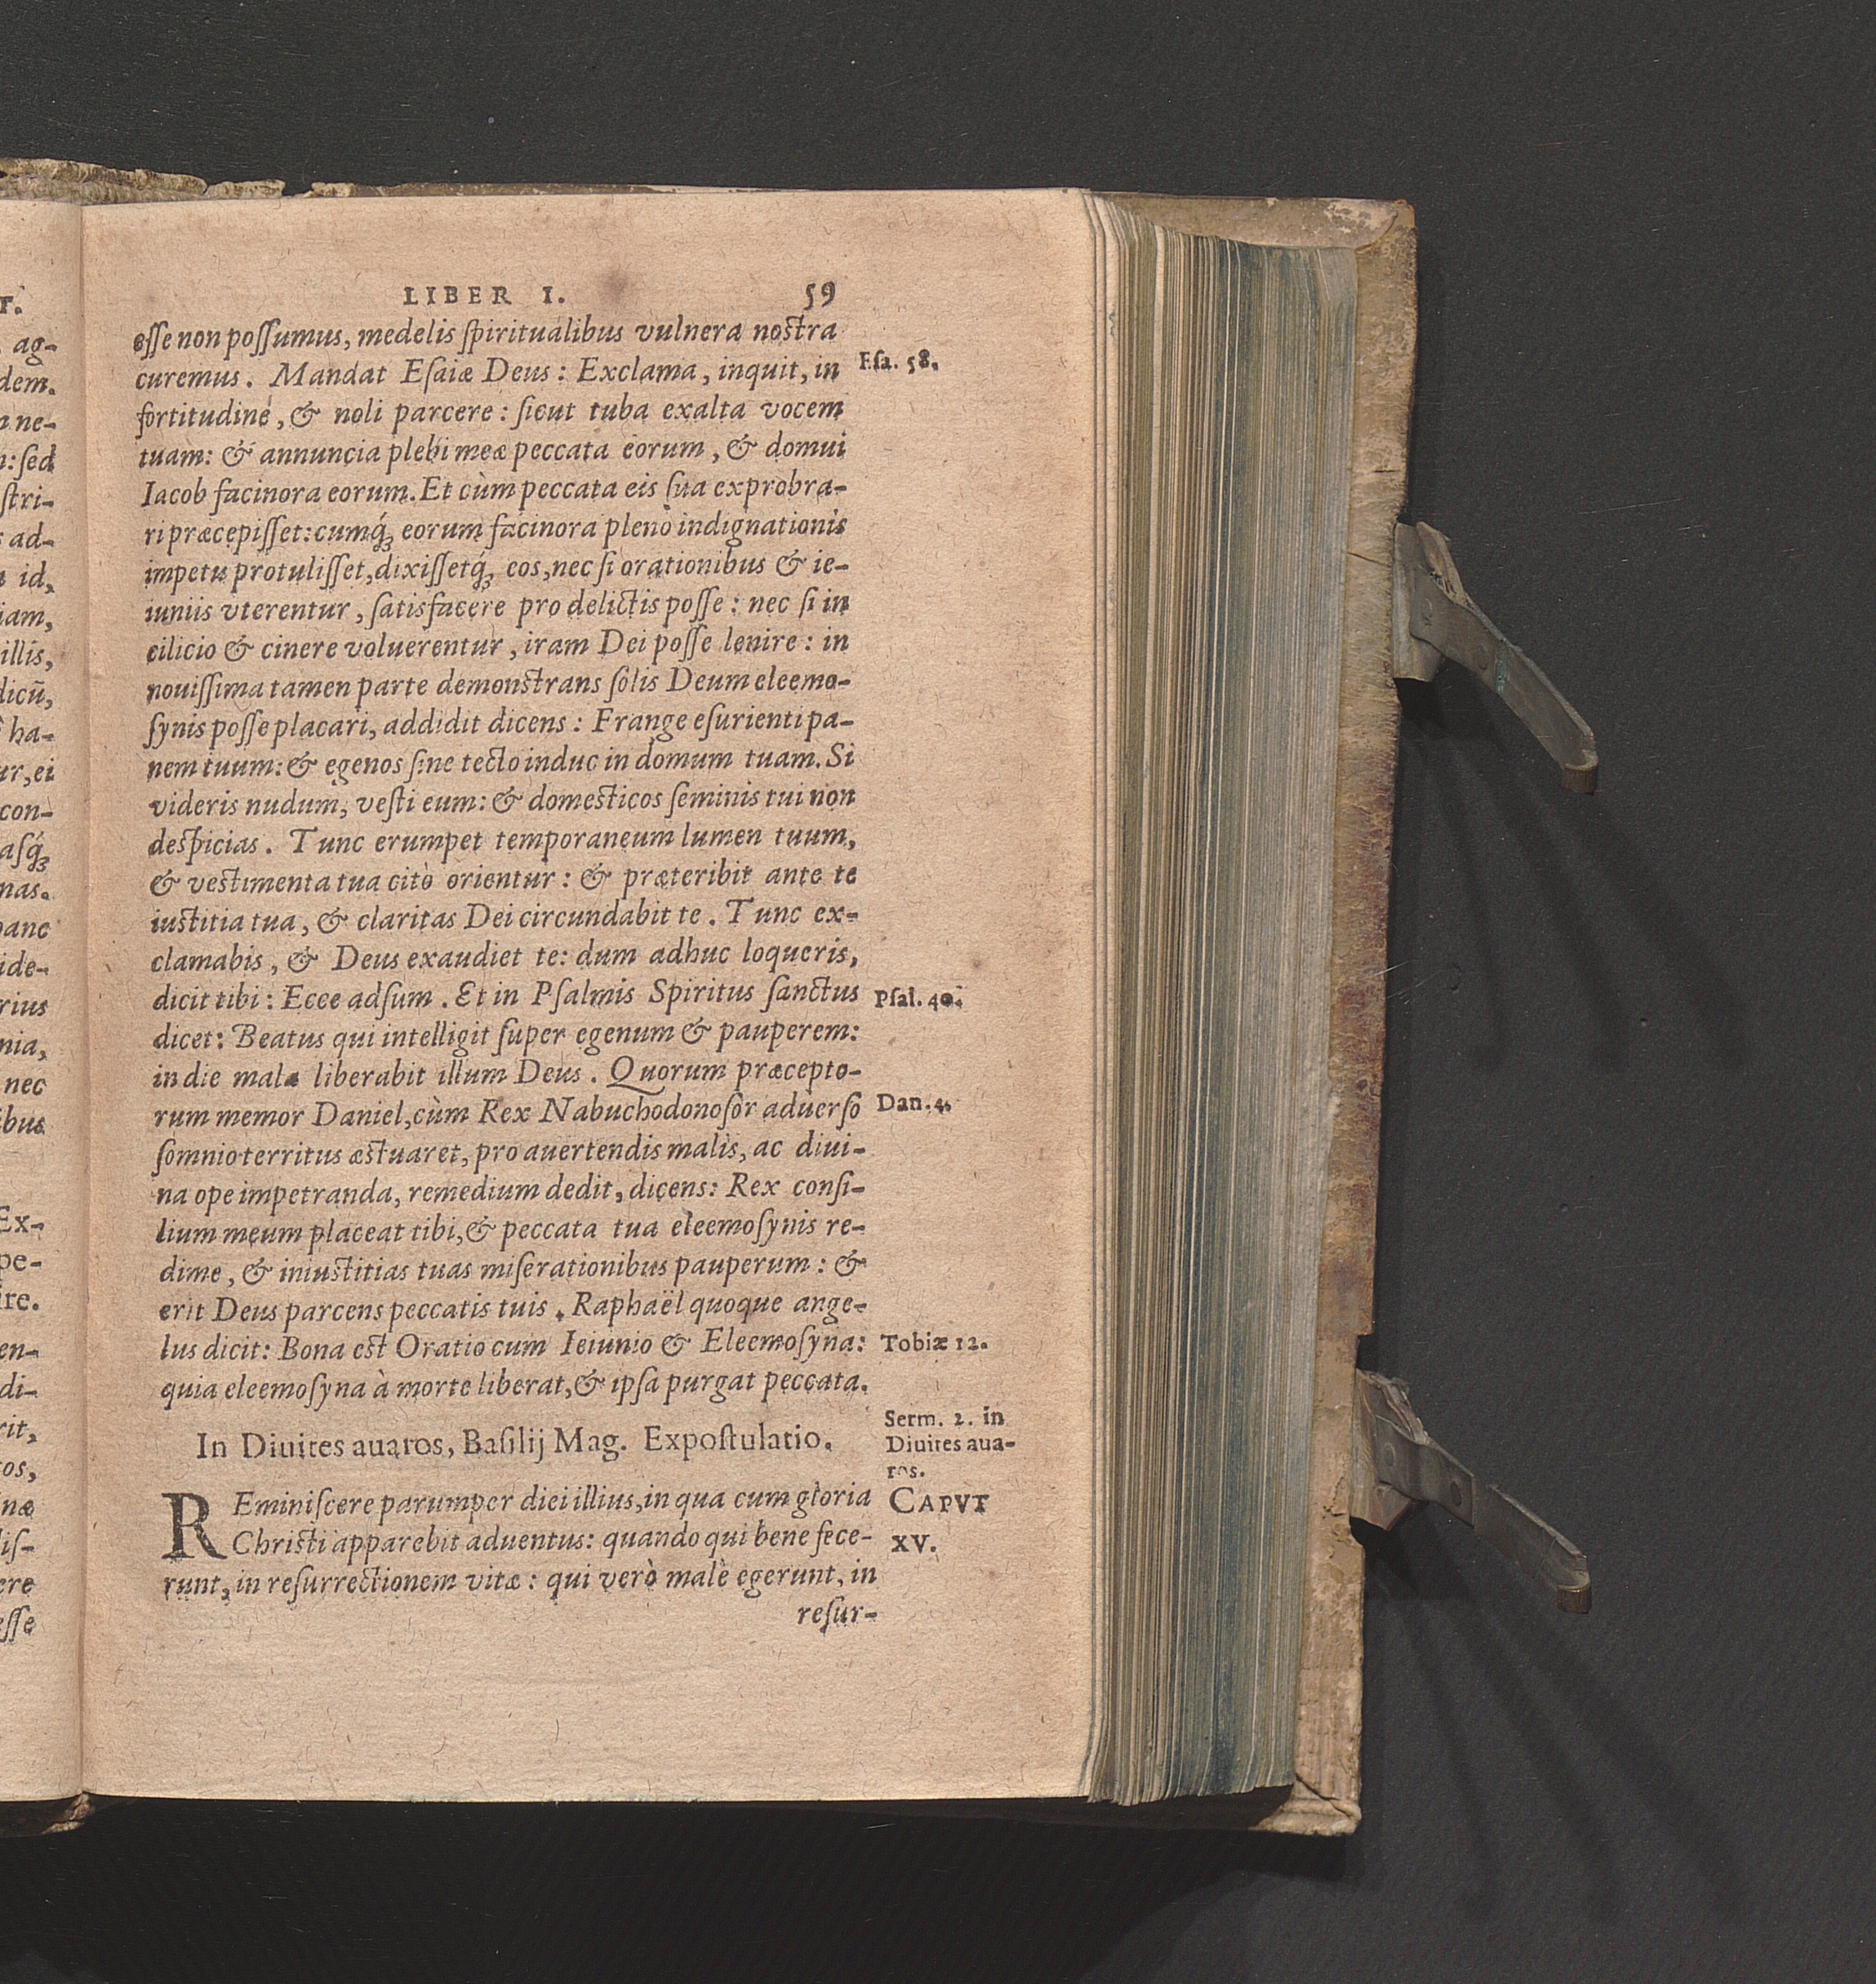 T.
ag-
dem.
ne-
n: ſed
ſtri-
ad-
id,
iam,
illis,
dicū,
ha-
ur, ei
con-
aſq́;
nas.
ide-
rius
nia,
nec
ibus
Ex-
pe-
ire.
en-
di-
rit,
tos,
liſ-
ere
eſſe
LIBER I. 59
eſſe non poſſumus, medelis ſpiritualibus vulnera noſtra
curemus. Mandat Eſaiæ Deus: Exclama, inquit, in
Eſa. 58.
fortitudine, & noli parcere: ſicut tuba exalta vocem
tuam: & annuncia plebi meæ peccata eorum, & domui
Iacob facinora eorum. Et cùm peccata eis ſua exprobra-
ri præcepiſſet: cumq́; eorum facinora pleno indignationis
impetu protuliſſet, dixiſſetq́; eos, nec ſi orationibus & ie-
iuniis vterentur, ſatisfacere pro delictis poſſe: nec ſi in
cilicio & cinere voluerentur, iram Dei poſſe lenire: in
nouiſſima tamen parte demonſtrans ſolis Deum eleemo-
ſynis poſſe placari, addidit dicens: Frange eſurienti pa-
nem tuum: & egenos ſine tecto induc in domum tuam. Si
videris nudum, veſti eum: & domeſticos ſeminis tui non
deſpicias. Tunc erumpet temporaneum lumen tuum,
& veſtimenta tua citò orientur: & præteribit ante te
iuſtitia tua, & claritas Dei circundabit te. Tunc ex-
clamabis, & Deus exaudiet te: dum adhuc loqueris,
dicit tibi: Ecce adſum. Et in Pſalmis Spiritus ſanctus
Pſal. 40.
dicet: Beatus qui intelligit ſuper egenum & pauperem:
in die mala liberabit illum Deus. Quorum præcepto-
rum memor Daniel, cùm Rex Nabuchodonoſor aduerſo
Dan. 4.
ſomnio territus æſtuaret, pro auertendis malis, ac diui-
na ope impetranda, remedium dedit, dicens: Rex conſi-
lium meum placeat tibi, & peccata tua eleemoſynis re-
dime, & iniuſtitias tuas miſerationibus pauperum: &
erit Deus parcens peccatis tuis. Raphaël quoque ange-
lus dicit: Bona eſt Oratio cum Ieiunio & Eleemoſyna:
Tobiæ 12.
quia eleemoſyna à morte liberat, & ipſa purgat peccata.
In Diuites auaros, Baſilij Mag. Expoſtulatio.
Serm. 2. in
Diuites aua-
ros.
REminiſcere parumper diei illius, in qua cum gloria
CAPVT
Chriſti apparebit aduentus: quando qui bene fece-
XV.
runt, in reſurrectionem vitæ: qui verò malè egerunt, in
reſur-